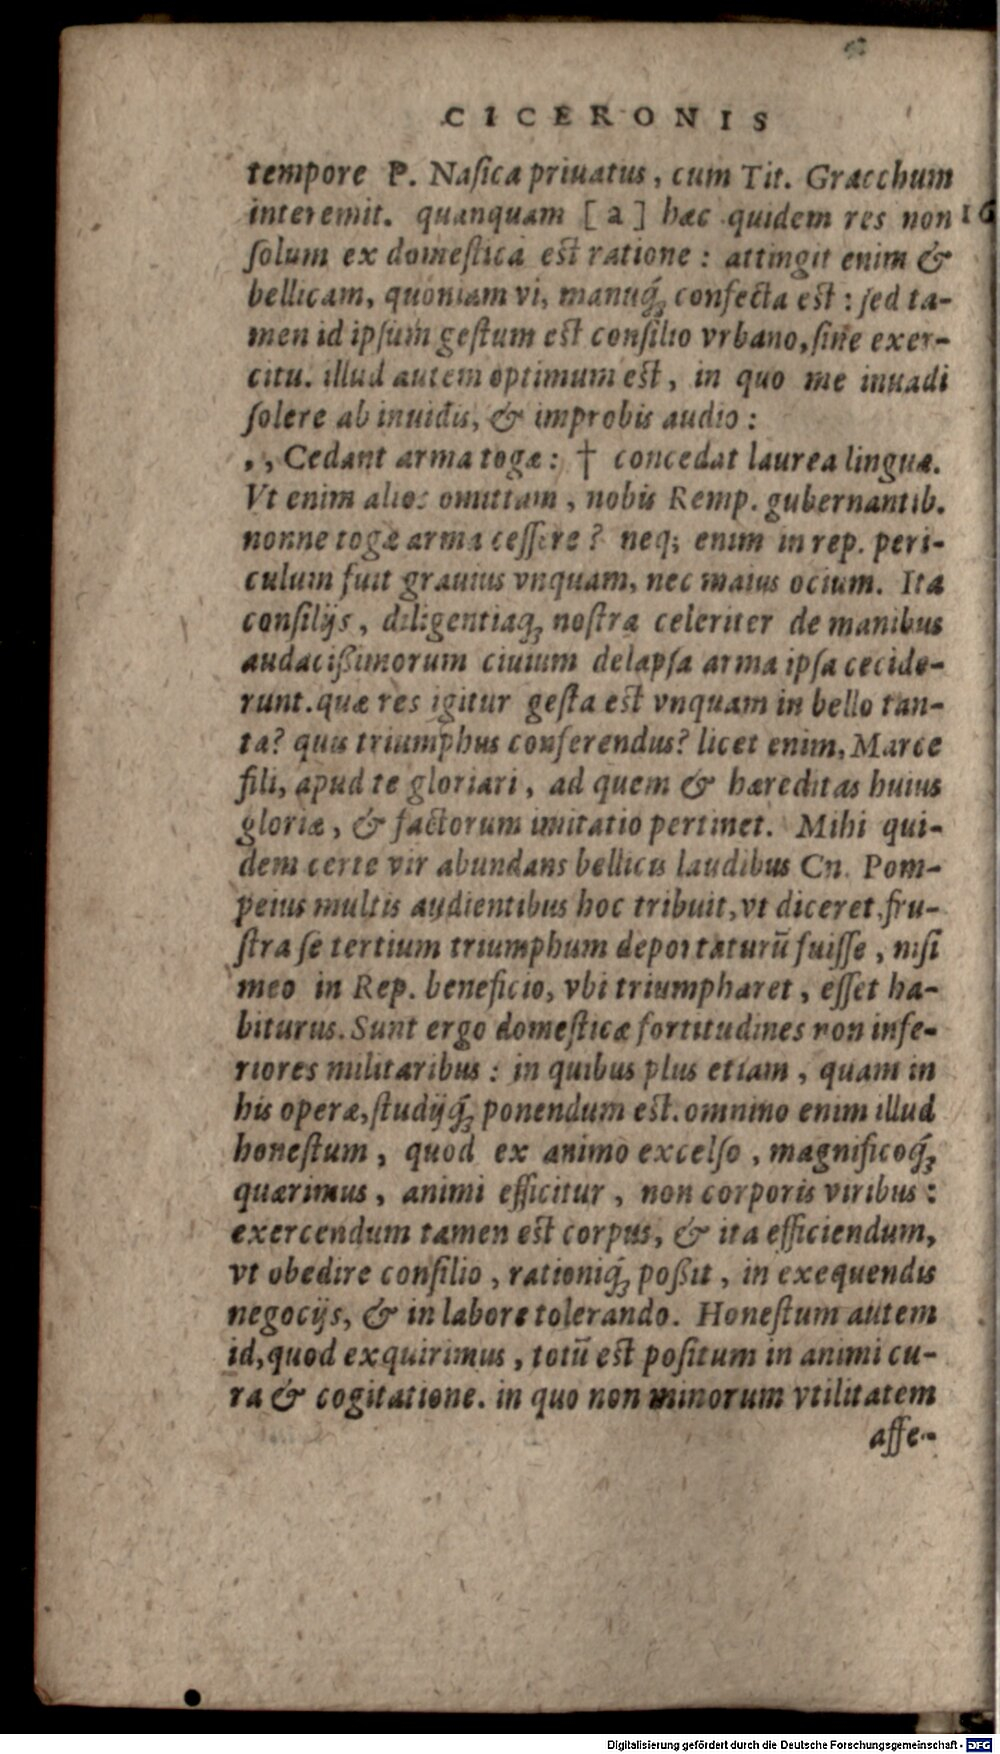 CICERONIS
tempore P. Naſica priuatus, cum Tit. Gracchum
interemit. quanquam [a] hæc quidem res non 1G
ſolum ex domeſtica est ratione : attingit enim &
bellicam, quoniam vi, manuq́; confecta est : ſed ta-
men id ipſum geſtum est conſilio vrbano, ſine exer-
citu. illud autem optimum est, in quo me inuadi
ſolere ab inuidis, & improbis audio :
,, Cedant arma togæ : † concedat laurea linguæ.
Vt enim alios omittam, nobis Remp. gubernantib.
nonne togæ arma ceſſere ? neq; enim in rep. peri-
culum fuit grauius vnquam, nec maius ocium. Ita
conſilijs, diligentiaq; noſtra celeriter de manibus
audacißimorum ciuium delapſa arma ipſa cecide-
runt. quæ res igitur geſta est vnquam in bello tan-
ta? quis triumphus conferendus? licet enim, Marce
fili, apud te gloriari, ad quem & hæreditas huius
gloriæ, & factorum imitatio pertinet. Mihi qui-
dem certe vir abundans bellicis laudibus Cn. Pom-
peius multis audientibus hoc tribuit, vt diceret, fru-
ſtra ſe tertium triumphum deportaturū fuiſſe, niſi
meo in Rep. beneficio, vbi triumpharet, eſſet ha-
biturus. Sunt ergo domeſticæ fortitudines non infe-
riores militaribus : in quibus plus etiam, quam in
his operæ, ſtudijq́; ponendum est. omnino enim illud
honeſtum, quod ex animo excelſo, magnificoq́;
quærimus, animi efficitur, non corporis viribus :
exercendum tamen est corpus, & ita efficiendum,
vt obedire conſilio, rationiq́; poßit, in exequendis
negocijs, & in labore tolerando. Honeſtum autem
id, quod exquirimus, totū est poſitum in animi cu-
ra & cogitatione. in quo non minorum vtilitatem
aſſe-
Digitalisierung gefördert durch die Deutsche Forschungsgemeinschaft - DFG